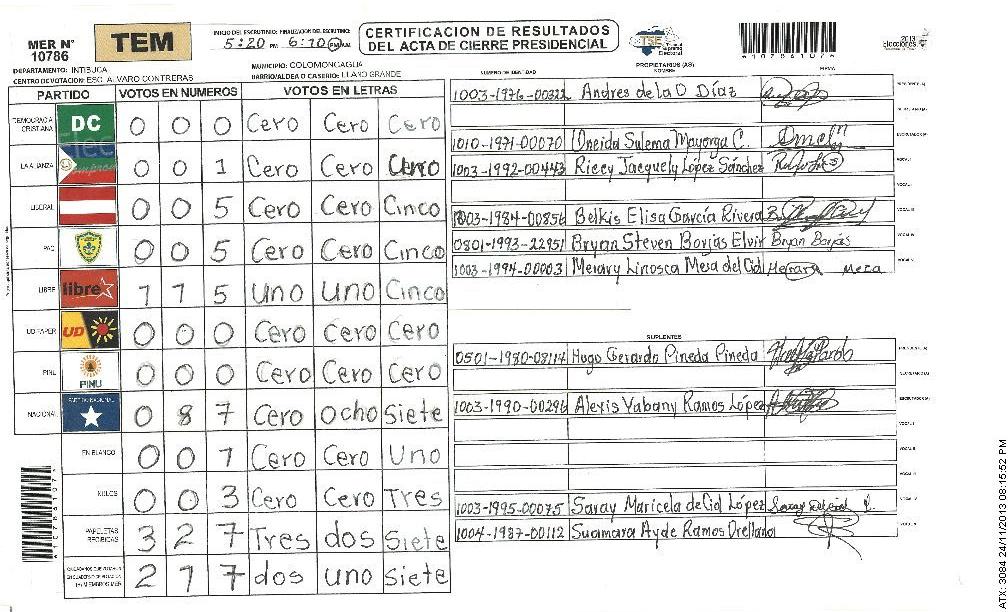 MER N° 10786
TEM
INICIO DEL ESCRUTINIO: FINALIZACION DEL ESCRUTINIO:
5:20 PM 6:10 PM
CERTIFICACION DE RESULTADOS
DEL ACTA DE CIERRE PRESIDENCIAL
TSE
2013
Elecciones
DEPARTAMENTO: INTIBUCA
MUNICIPIO: COLOMONCAGUA
CENTRO DE VOTACION: ESC. ALVARO CONTRERAS
BARRIO/ALDEA O CASERIO: LLANO GRANDE
PARTIDO VOTOS EN NUMEROS VOTOS EN LETRAS
DEMOCRACIA CRISTIANA DC 0 0 0 Cero Cero Cero
LA ALIANZA 0 0 1 Cero Cero
LIBERAL 0 0 5 Cero Cero Cinco
PAC 0 0 5 Cero Cero Cinco
LIBRE libre 1 1 5 Uno Uno Cinco
UD FAPER UD 0 0 0 Cero Cero Cero
PINU PINU 0 0 0 Cero Cero Cero
NACIONAL PARTIDO NACIONAL 0 8 7 Cero ocho Siete
EN BLANCO 0 0 1 Cero Cero Uno
NULOS 0 0 3 Cero Cero Tres
PAPELETAS RECIBIDAS 3 2 7 Tres dos Siete
2 1 7 dos uno Siete
NUMERO DE IDENTIDAD PROPIETARIOS (AS) NOMBRE FIRMA
1003-1976-00322 Andres de la O Díaz
1010-1971-00070 Oneida Sulema Mayorga C.
1003-1992-00443 Riccy Jacquely López Sánchez
1003-1984-00856 Belkis Elisa García Rivera
0801-1993-22951 Bryan Steven Borjas Elvir Bryan Borjas
1003-1994-00003 Meza del Cid Meza
SUPLENTES
0501-1980-08114 Hugo Gerardo Pineda Pineda
1003-1990-00296 Alexis Yabany Ramos López
1003-1995-00075 Saray Maricela del Cid López
1004-1987-00112 Suamara Ayde Ramos Orellana
ATX: 3084 24/11/2013 08:15:52 PM